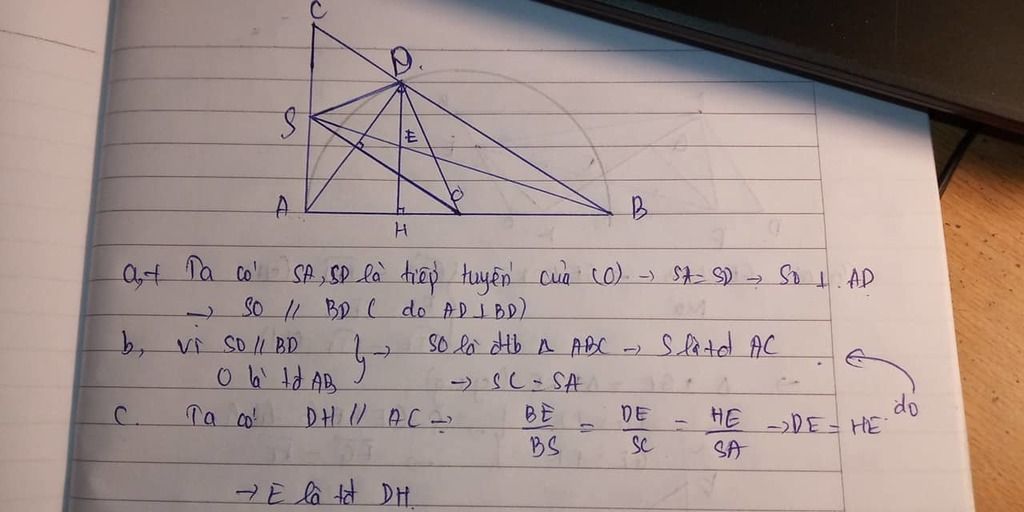 C
D.
S
E
A
O
B
H
a,+ Ta có SA, SD là tiếp tuyến của (O) → SA = SD → SO ⊥ AD
→ SO // BD ( do AD ⊥ BD)
b, vì SO // BD } → SO là đtb Δ ABC → S là tđ AC
O là tđ AB → SC = SA
do
C. Ta có DH // AC → BE/BS = DE/SC = HE/SA → DE = HE
→ E là tđ DH.